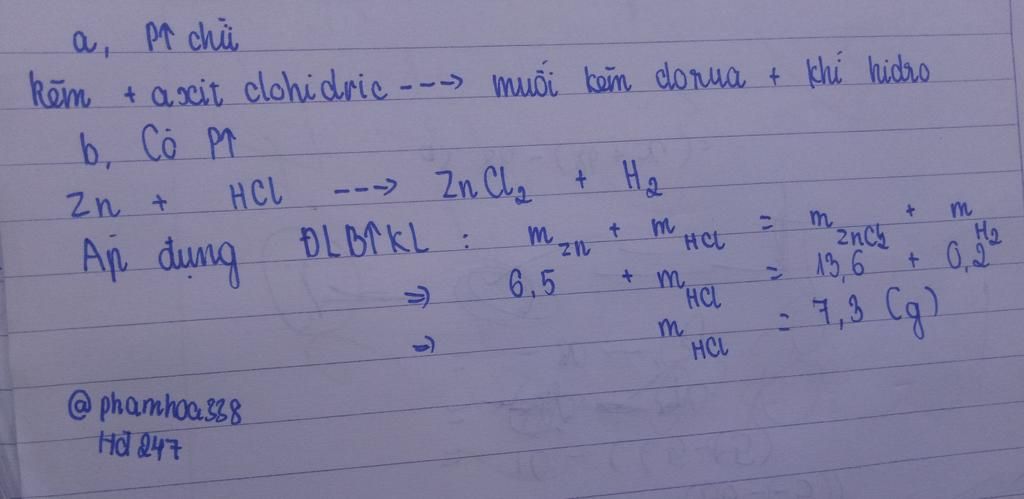 a, PT chữ
kẽm + axit clohidric ---> muối kẽm clorua + khí hidro
b, Có PT
Zn + HCl ---> ZnCl₂ + H₂
Áp dụng ĐLBTKL : m_Zn + m_HCl = m_ZnCl₂ + m_H₂
=> 6,5 + m_HCl = 13,6 + 0,2
=> m_HCl = 7,3 (g)
@phamhoa338
Hđ 247